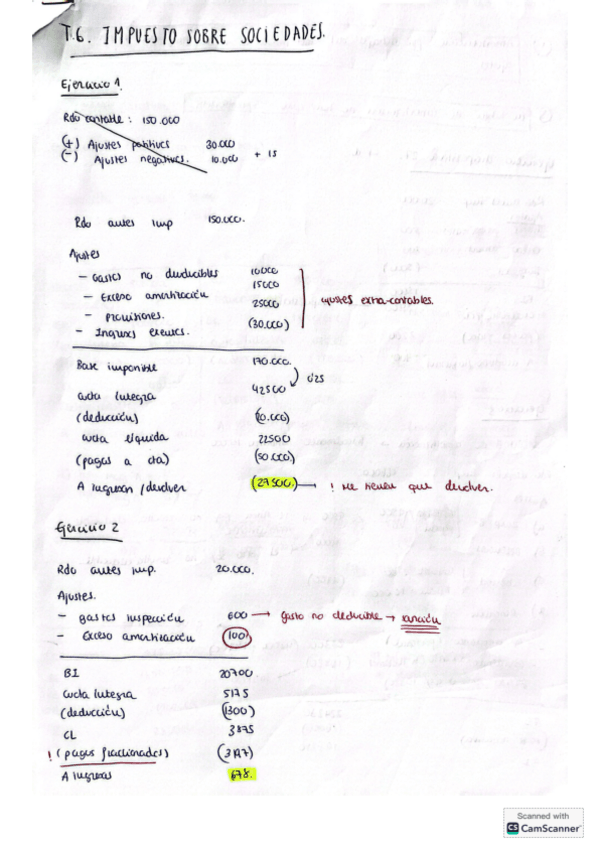 T.6. IMPUESTO SOBRE SOCIEDADES.
Ejercicio 1.
Rdo contable : 150.000
(+) Ajustes positivos 30.000
(-) Ajustes negativos. 10.000 + 15
Rdo antes imp 150.000.
Ajustes
- Gastos no deducibles 10000
- Exceso amortización 15000
- Provisiones. 25000
- Ingresos exentos. (30.000)
ajustes extra-contables.
Base imponible 170.000.
0'25
cuota íntegra 42500
(deducción) (20.000)
cuota líquida 22500
(pagos a cta) (50.000)
A ingresar/devolver (27500) → ! Me tienen que devolver.
Ejercicio 2
Rdo antes imp. 20.000.
Ajustes.
- gastos inspección 600 → gasto no deducible → sanción
- Exceso amortización 100
BI 20700
Cuota íntegra 5175
(deducción) (1300)
CL 3875
! (pagos fraccionados) (3197)
A ingresar 678.
Scanned with
CS CamScanner